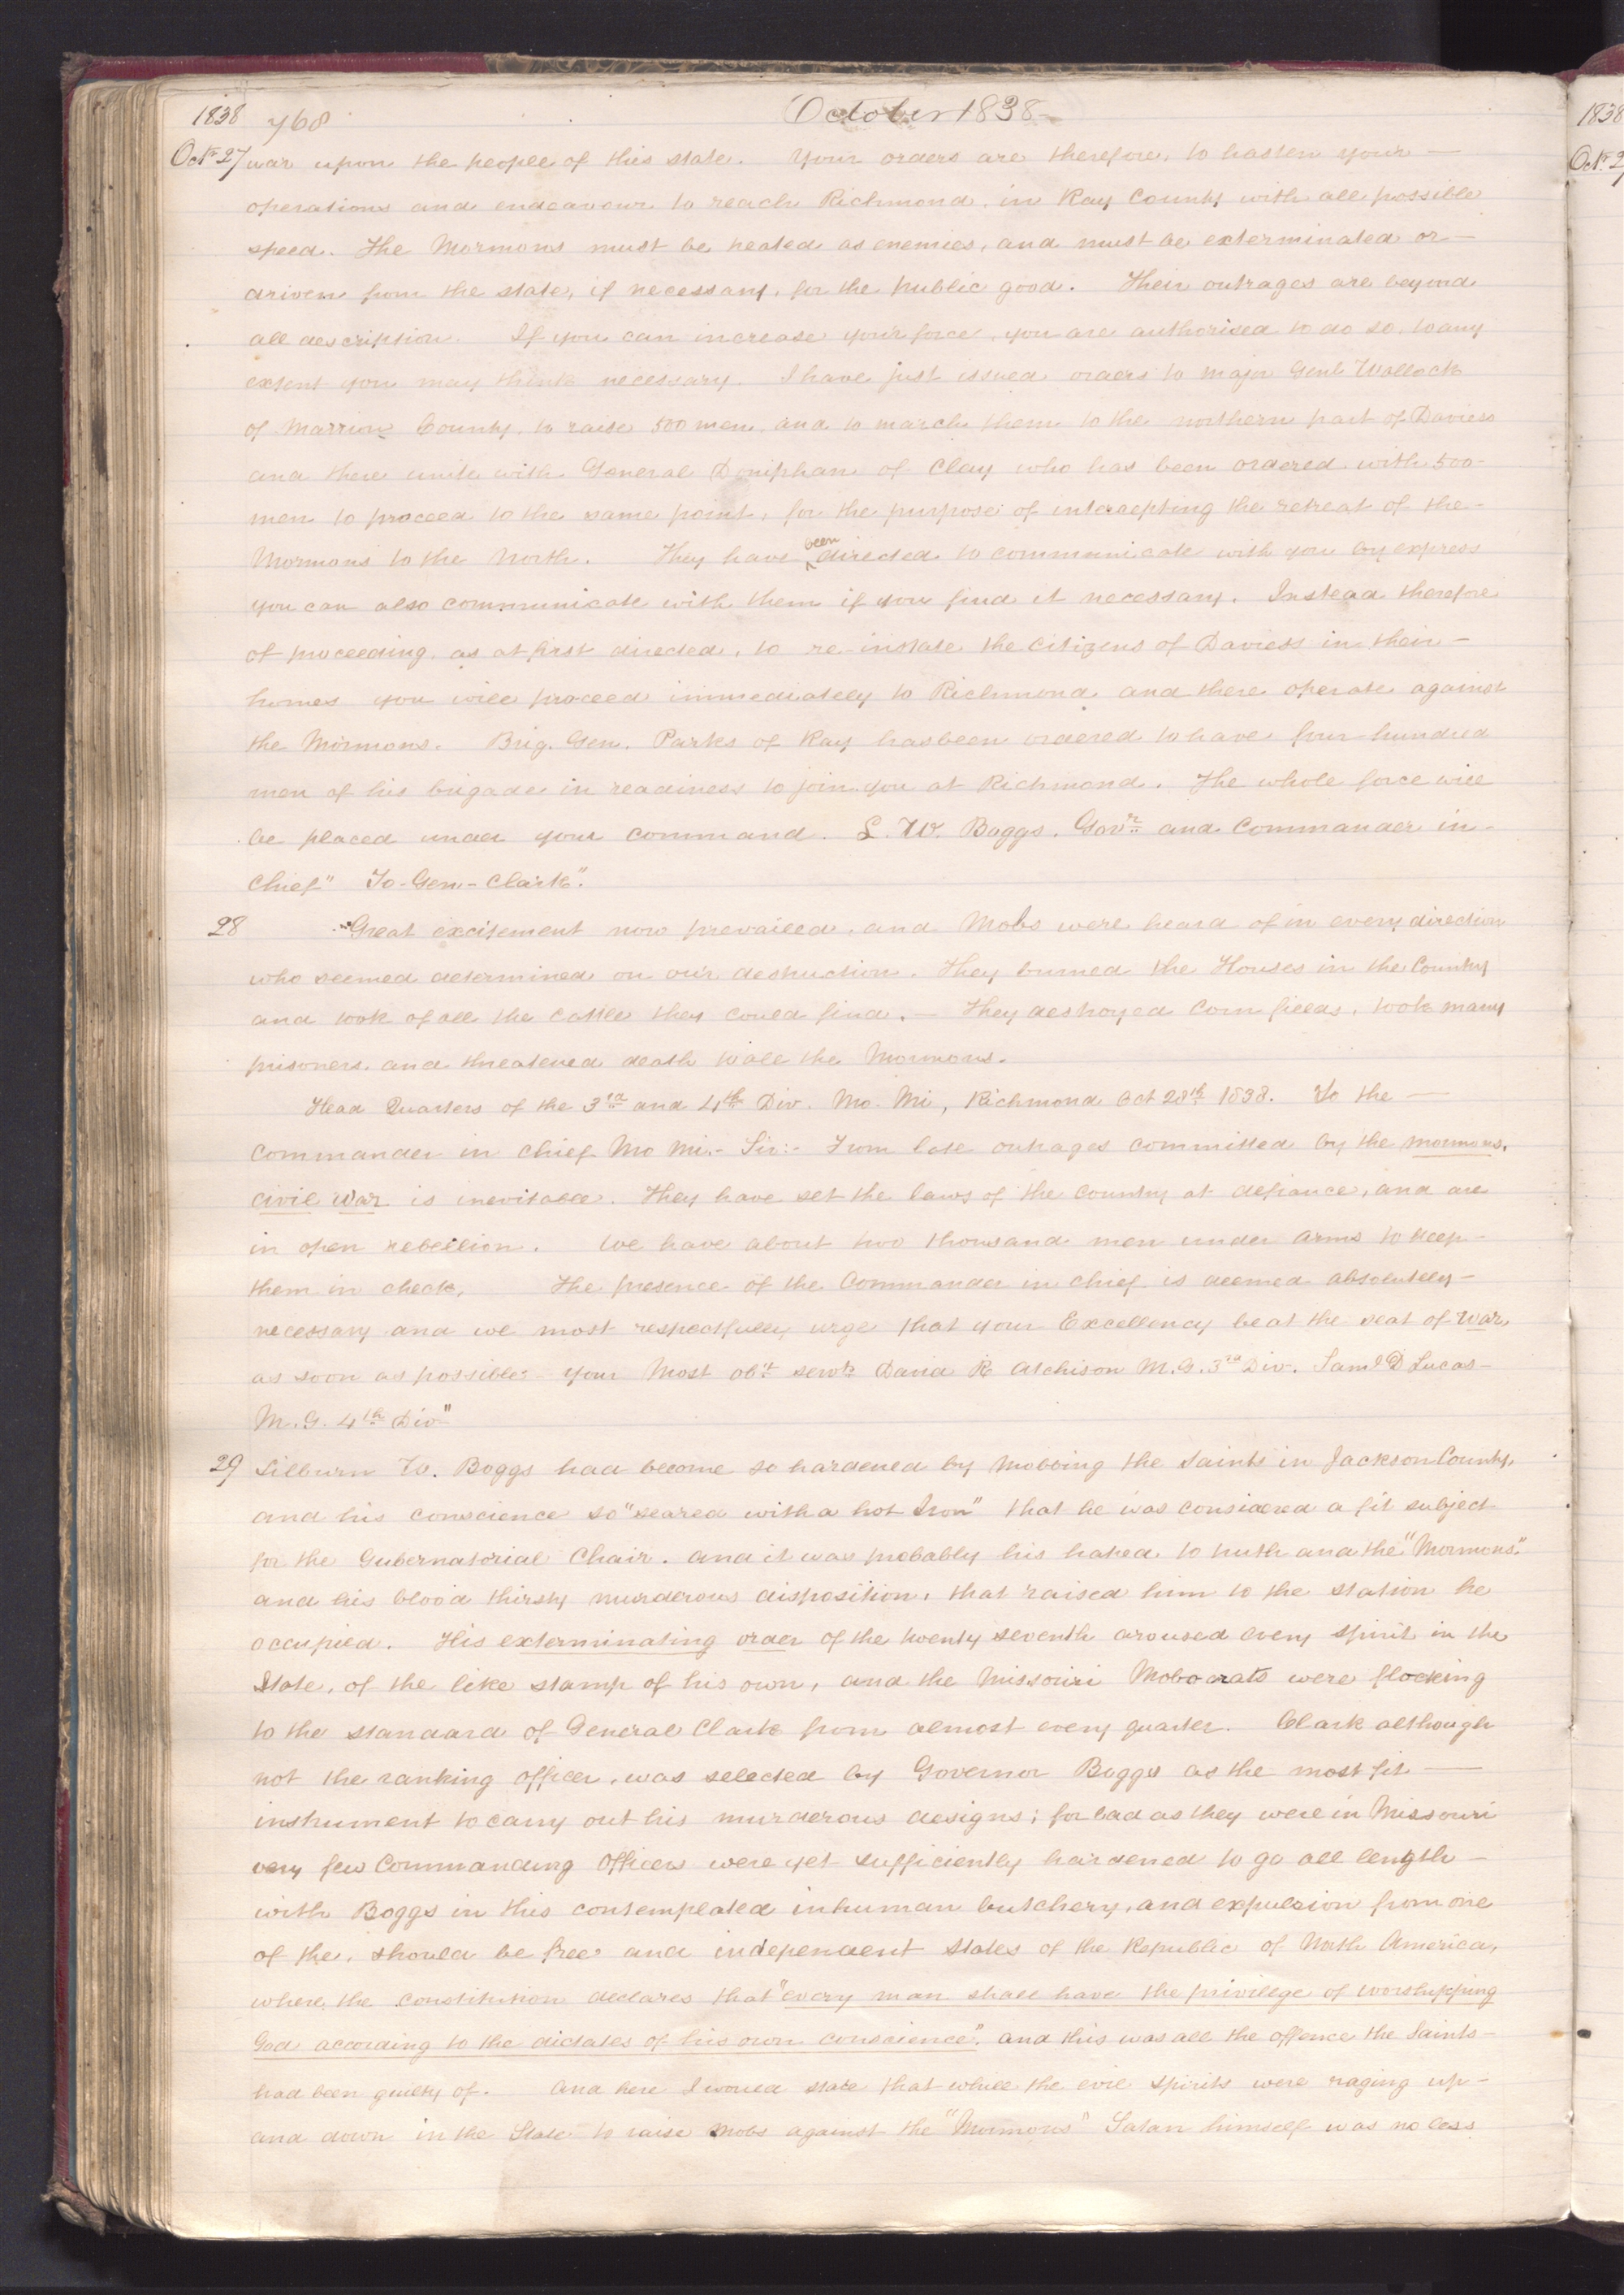 1838 768 October 1838
Oct. 27 war upon the people of this state. Your orders are therefore, to hasten your —
operations and endeavour to reach Richmond, in Ray County with all possible
speed. The Mormons must be treated as enemies, and must be exterminated or —
driven from the state, if necessary, for the public good. Their outrages are beyond
all description. If you can increase your force, you are authorised to do so, to any
extent you may think necessary. I have just issued orders to Major Genl Wallock
of Marrion County, to raise 500 men, and to march them to the northern part of Daviess
and there unite with General Doniphan of Clay who has been ordered with 500-
men to proceed to the same point, for the purpose of intercepting the retreat of the-
Mormons to the North. They have been directed to communicate with you by express
you can also communicate with them if you find it necessary. Instead therefore
of proceeding, as at first directed, to re-instate the citizens of Daviess in their —
homes you will proceed immediately to Richmond and there operate against
the Mormons. Brig. Gen. Parks of Ray has been ordered to have four hundred
men of his brigade in readiness to join you at Richmond. The whole force will
be placed under your command. L. W. Boggs. Govr and Commander in-
Chief" To-Gen-Clark".
28 "Great excitement now prevailed, and Mobs were heard of in every direction
who seemed determined on our destruction. They burned the Houses in the Country
and took of all the cattle they could find. — They destroyed Corn fields, took many
prisoners, and threatened death to all the Mormons.
Head Quarters of the 3rd and 4th Div. Mo. Mi, Richmond Oct 28th 1838. To the —
Commander in Chief Mo Mi.- Sir:- From late outrages committed by the mormons,
civil war is inevitable. They have set the laws of the Country at defiance, and are
in open rebellion. We have about two thousand men under arms to keep-
them in check. The presence of the Commander in Chief is deemed absolutely-
necessary and we most respectfully urge that your Excellency be at the seat of war,
as soon as possible- your Most obt servts David R Atchison M.G. 3rd Div. Saml D Lucas-
M.G. 4th Div"
29 Lilburn W. Boggs had become so hardened by mobbing the Saints in Jackson County,
and his conscience so "seared with a hot Iron" that he was considered a fit subject
for the Gubernatorial Chair. and it was probably his hatred to truth and the "Mormons".
and his blood thirsty murderous disposition, that raised him to the station he
occupied. His exterminating order of the twenty seventh aroused every spirit in the
State, of the like stamp of his own, and the Missouri Mobocrats were flocking
to the standard of General Clark from almost every quarter. Clark although
not the ranking officer, was selected by Governor Boggs as the most fit —
instrument to carry out his murderous designs; for bad as they were in Missouri
very few Commanding Officers were yet sufficiently hardened to go all length —
with Boggs in this contemplated inhuman butchery, and expulsion from one
of the, should be free and independent States of the Republic of North America,
where, the constitution declares that "every man shall have the privilege of worshipping
God according to the dictates of his own conscience". and this was all the offence the Saints-
had been guilty of. And here I would state that while the evil spirits were raging up-
and down in the State to raise Mobs against the "Mormons" Satan himself was no less
1838
Oct. 2